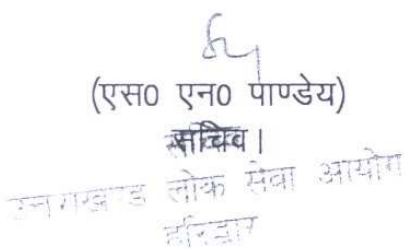 (एस0 एन0 पाण्डेय)
सचिव।
उत्तराखण्ड लोक सेवा आयोग
हरिद्वार